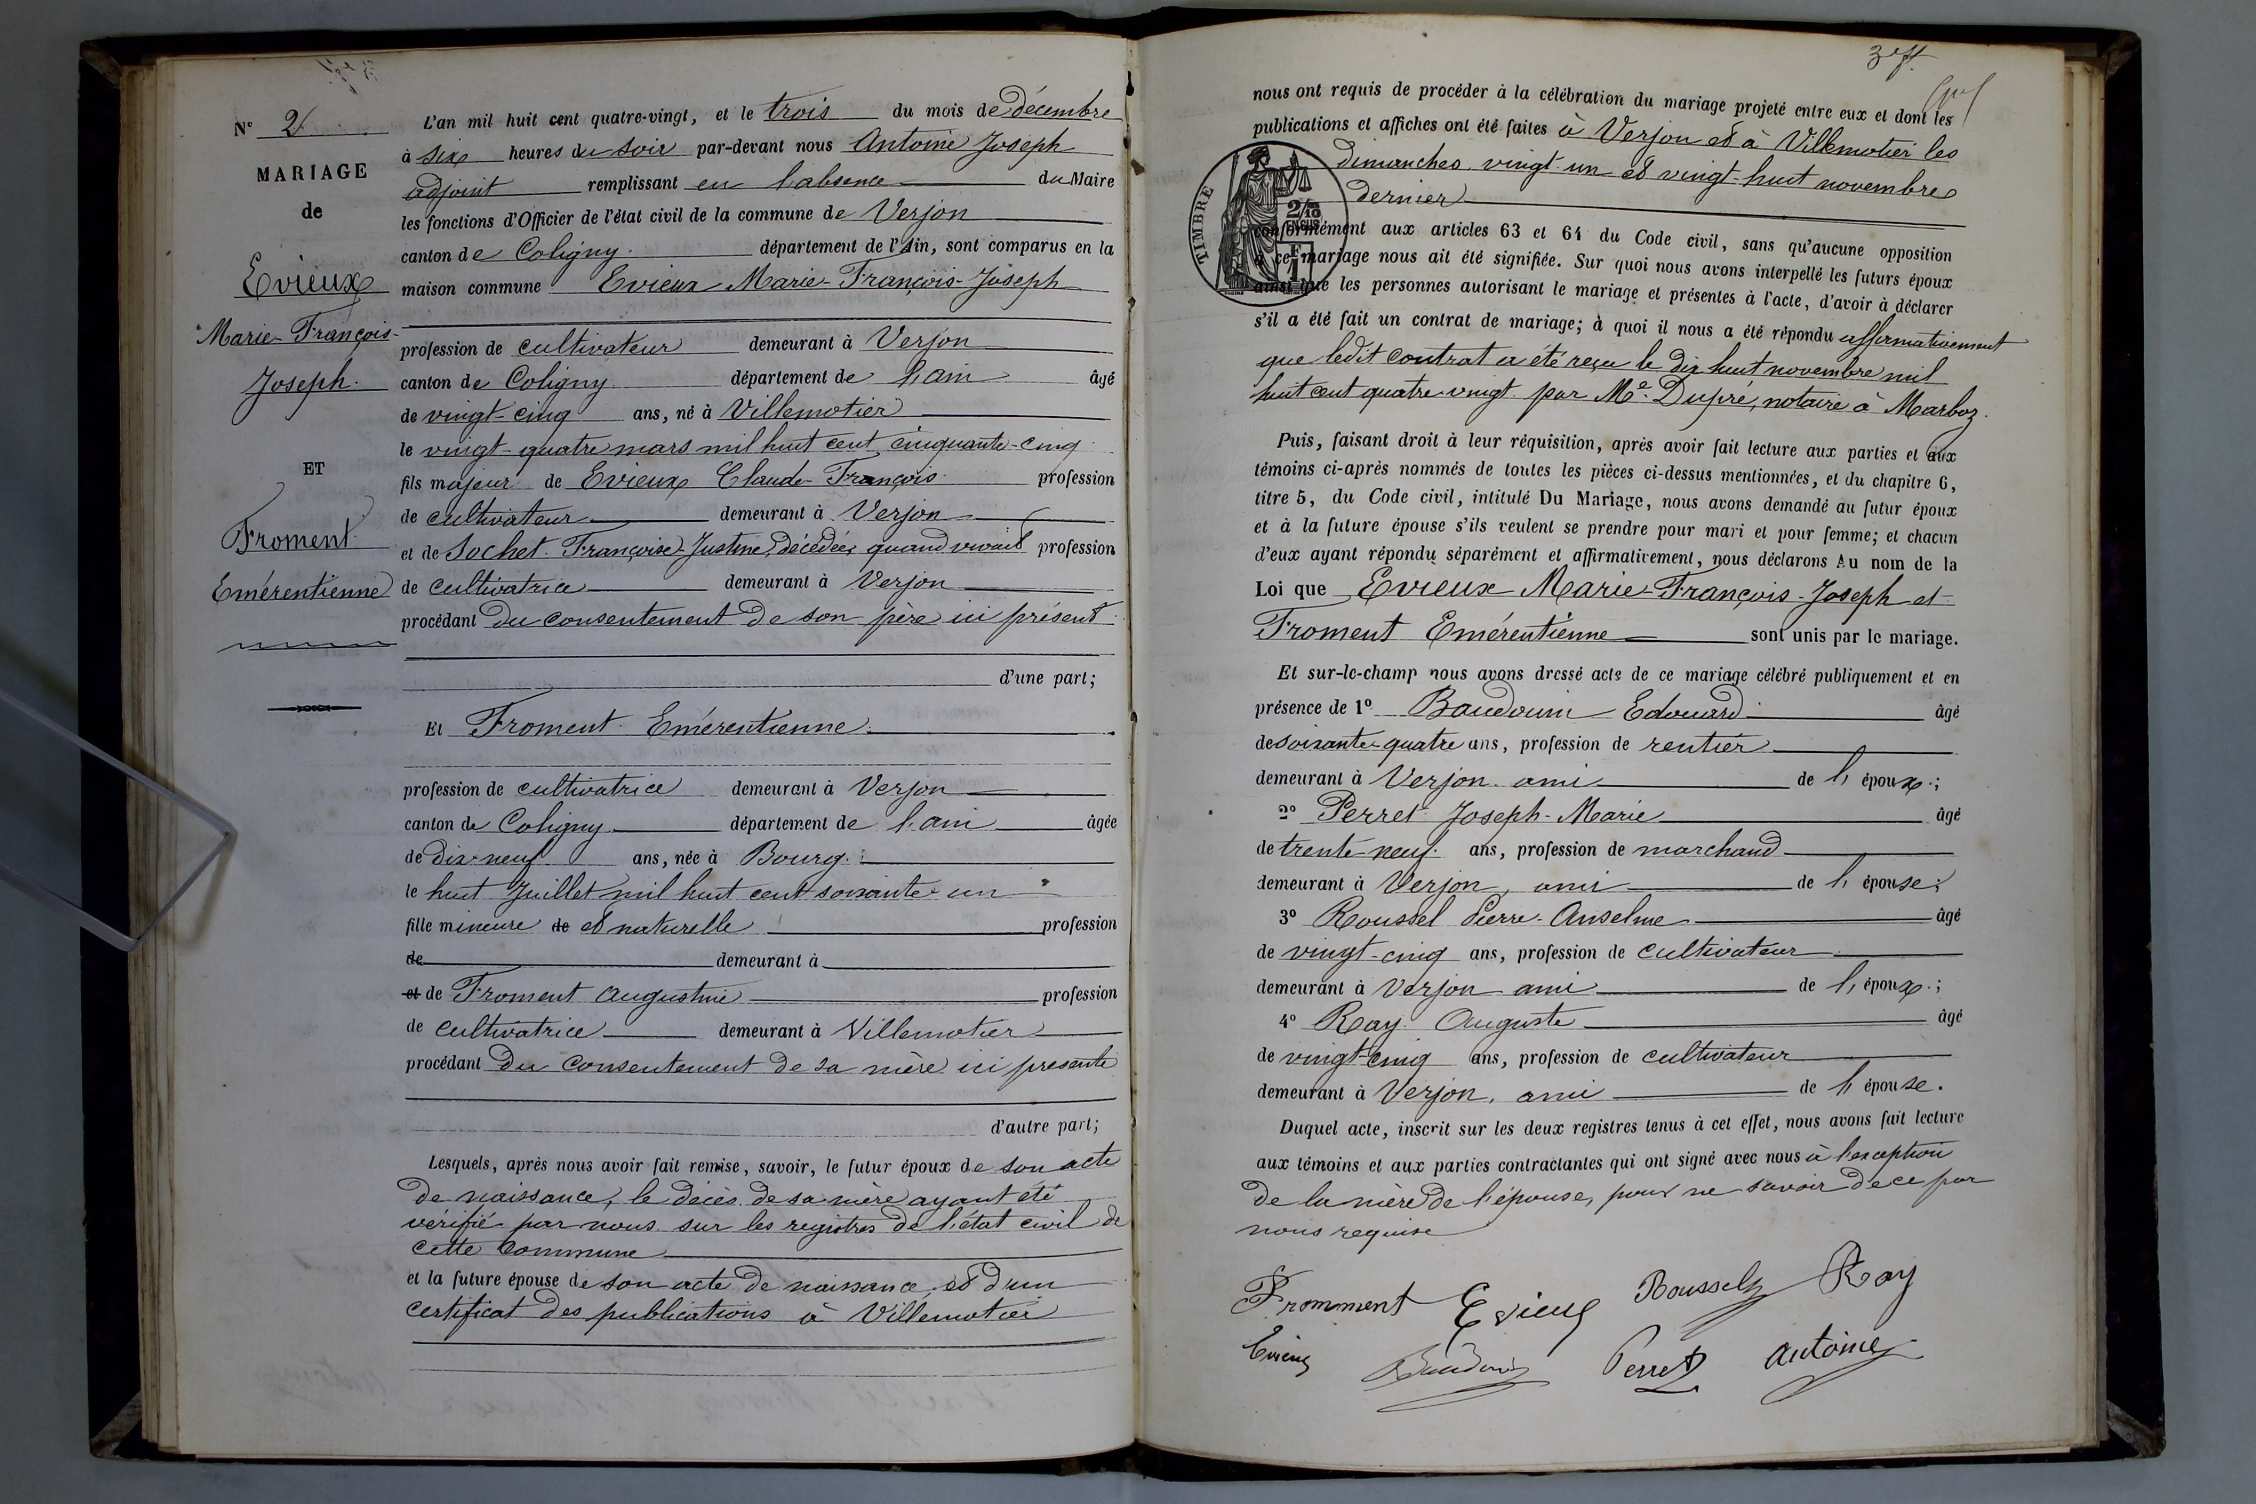 N° 2
MARIAGE
de
Evieux
Marie-François-
Joseph.
ET
Froment
Emérentienne
L'an mil huit cent quatre-vingt, et le trois du mois de décembre
à six heures du soir par-devant nous Antoine Joseph
adjoint remplissant en l'absence du Maire
les fonctions d'Officier de l'état civil de la commune de Verjon
canton de Coligny département de l'Ain, sont comparus en la
maison commune Evieux Marie-François-Joseph
profession de cultivateur demeurant à Verjon
canton de Coligny département de l'ain âgé
de vingt-cinq ans, né à Villemotier
le vingt-quatre mars mil huit cent cinquante-cinq
fils majeur de Evieux Claude-François profession
de cultivateur demeurant à Verjon
et de Sochet Françoise-Justine, décédée, quand vivait profession
de cultivatrice demeurant à Verjon
procédant du consentement de son père ici présent
d'une part;
Et Froment Emérentienne
profession de cultivatrice demeurant à Verjon
canton de Coligny département de l'ain âgée
de dix-neuf ans, née à Bourg
le huit Juillet mil huit cent soixante-un
fille mineure de et naturelle profession
de demeurant à
et de Froment Augustine profession
de cultivatrice demeurant à Villemotier
procédant du consentement de sa mère ici présente
d'autre part;
Lesquels, après nous avoir fait remise, savoir, le futur époux de son acte
de naissance, le décès de sa mère ayant été
vérifié par nous sur les registres de l'état civil de
cette commune
et la future épouse de son acte de naissance, et d'un
certificat des publications à Villemotier
3e ft
nous ont requis de procéder à la célébration du mariage projeté entre eux et dont les
publications et affiches ont été faites à Verjon et à Villemotier les
dimanches vingt-un et vingt-huit novembre
dernier
TIMBRE
2/10
EN SUS
conformément aux articles 63 et 64 du Code civil, sans qu'aucune opposition
à ce mariage nous ait été signifiée. Sur quoi nous avons interpellé les futurs époux
ainsi que les personnes autorisant le mariage et présentes à l'acte, d'avoir à déclarer
s'il a été fait un contrat de mariage; à quoi il nous a été répondu affirmativement
que ledit contrat a été reçu le dix huit novembre mil
huit cent quatre-vingt par Me Dupré, notaire à Marboz.
Puis, faisant droit à leur réquisition, après avoir fait lecture aux parties et aux
témoins ci-après nommés de toutes les pièces ci-dessus mentionnées, et du chapitre 6,
titre 5, du Code civil, intitulé Du Mariage, nous avons demandé au futur époux
et à la future épouse s'ils veulent se prendre pour mari et pour femme; et chacun
d'eux ayant répondu séparément et affirmativement, nous déclarons Au nom de la
Loi que Evieux Marie-François-Joseph et
Froment Emérentienne sont unis par le mariage.
Et sur-le-champ nous avons dressé acte de ce mariage célébré publiquement et en
présence de 1° Baudouin Edouard âgé
de soixante-quatre ans, profession de rentier
demeurant à Verjon ami de l'époux;
2° Perret Joseph-Marie âgé
de trente-neuf ans, profession de marchand
demeurant à Verjon, ami de l'épouse;
3° Roussel Pierre-Anselme âgé
de vingt-cinq ans, profession de cultivateur
demeurant à Verjon ami de l'époux;
4° Ray Auguste âgé
de vingt-cinq ans, profession de cultivateur
demeurant à Verjon, ami de l'épouse.
Duquel acte, inscrit sur les deux registres tenus à cet effet, nous avons fait lecture
aux témoins et aux parties contractantes qui ont signé avec nous à l'exception
de la mère de l'épouse, pour ne savoir de ce par
nous requise
Fromment Evieux Roussel Ray
Evieux Baudouin Perret Antoine